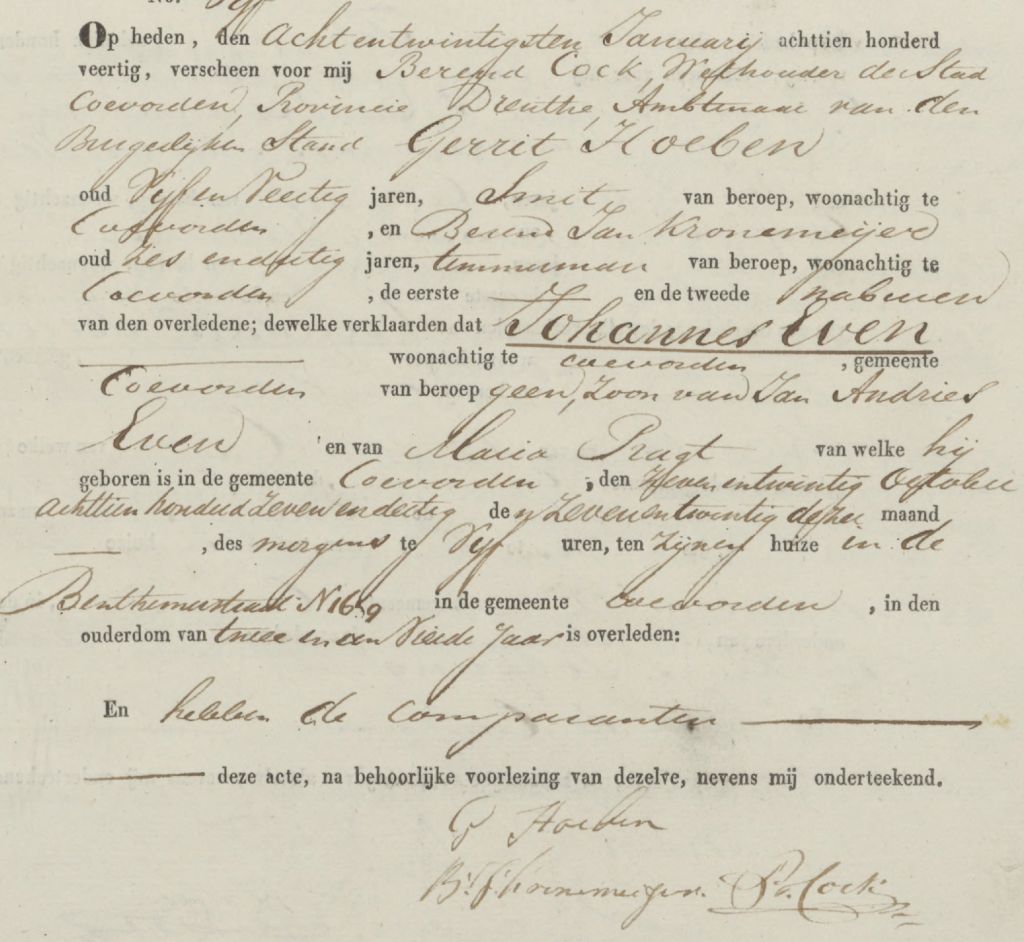 No. Vijf
Op heden, den Achtentwintigsten Januarij achttien honderd
veertig, verscheen voor mij Berend Cock, Wethouder der Stad
Coevorden, Provincie Drenthe, Ambtenaar van den
Burgerlijken Stand Gerrit Hoeben
oud Vijf en Veertig jaren, Smit, van beroep, woonachtig te
Coevorden , en Berend Jan Kronemeijer
oud Zes en dertig jaren, timmerman van beroep, woonachtig te
Coevorden , de eerste en de tweede nabuuren
van den overledene; dewelke verklaarden dat Johannes Even
woonachtig te Coevorden , gemeente
Coevorden van beroep geen, Zoon van Jan Andries
Even en van Maria Pragt van welke hij
geboren is in de gemeente Coevorden , den Zevenentwintig October
achttien honderd Zeven en dertig den Zevenentwintig dezer maand
, des morgens te Vijf uren, ten Zijnen huize in de
Benthemerstraat N 169 in de gemeente Coevorden , in den
ouderdom van twee en een Vierde Jaar is overleden:
En hebben de comparanten
deze acte, na behoorlijke voorlezing van dezelve, nevens mij onderteekend.
G Hoeben
B: J: Kronemeijer. B. Cock